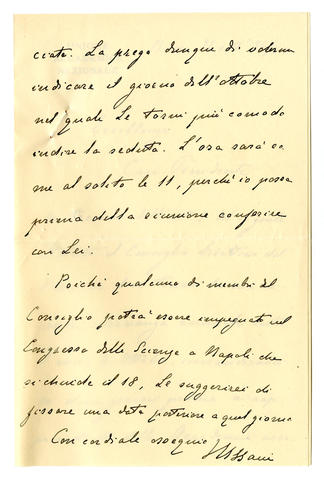 ciate. La prego dunque di volermi
indicare il giorno dell'ottobre
nel quale Le torni più comodo
indire la seduta. L'ora sarà co
me al solito le 11, perché io possa
prima della riunione conferire
con Lei.
Poiché qualcuno dei membri del
Consiglio potrà essere impegnato nel
Congresso delle Scienze a Napoli che
si chiude il 18, Le suggerirei di
fissare una data posteriore a quel giorno
Con cordiale ossequio